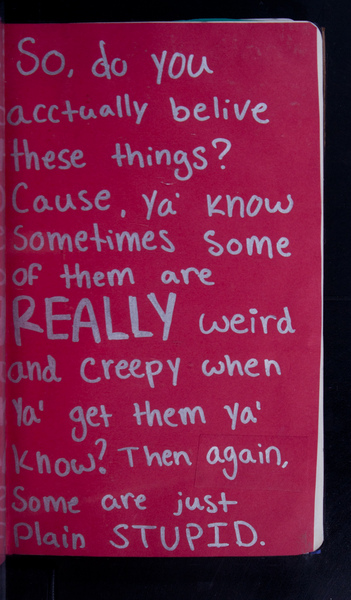 So, do you
acctually belive
these things?
Cause, ya' know
Sometimes Some
of them are
REALLY weird
and creepy when
Ya' get them ya'
know? Then again,
Some are just
Plain STUPID.